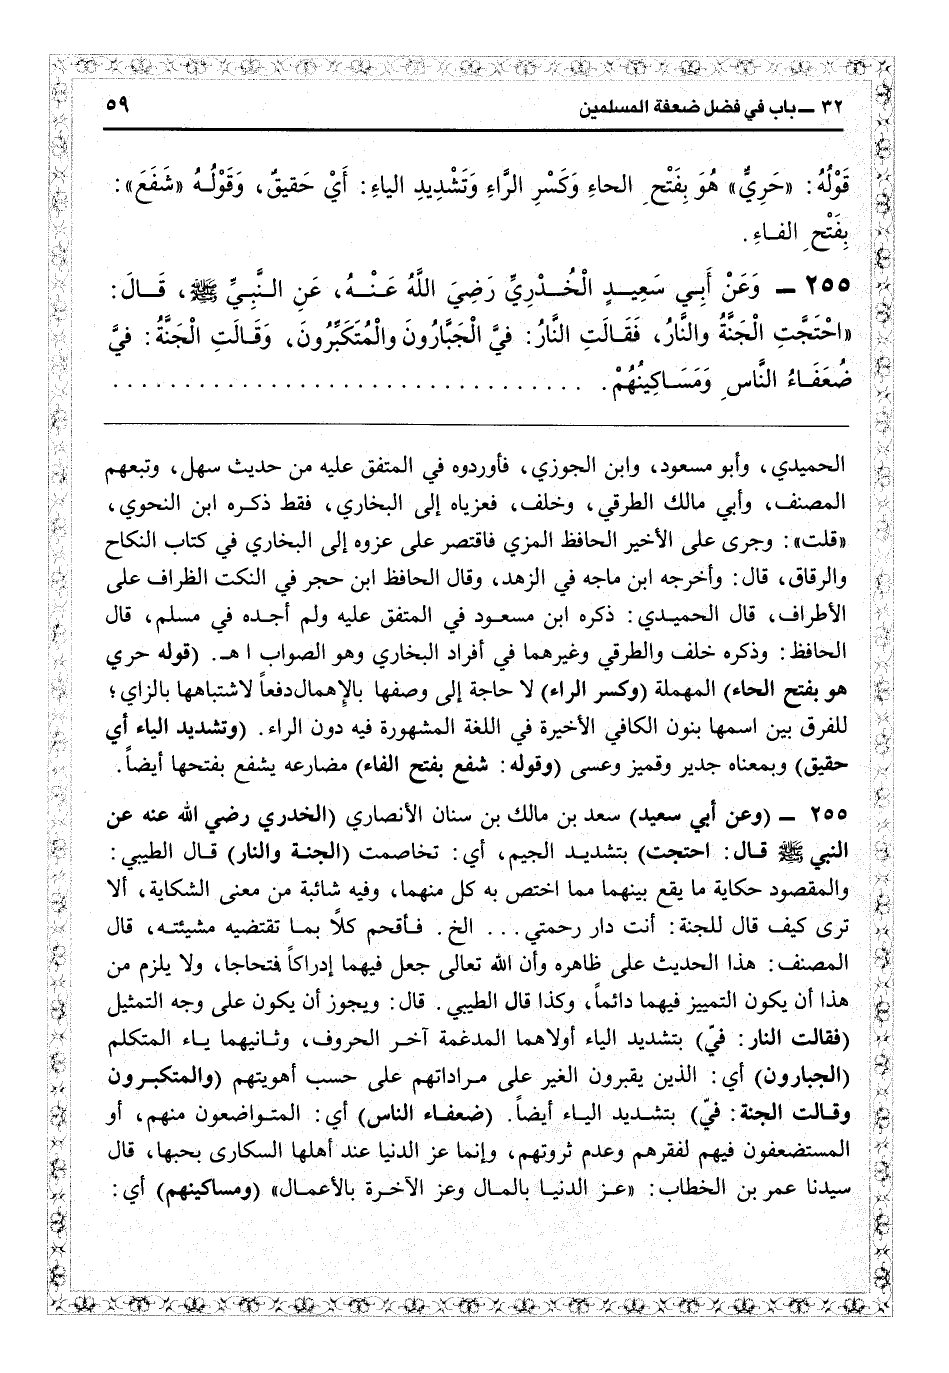 ٣٢ ـ باب في فضل ضعفة المسلمين
٥٩
قَوْلُهُ: «حَرِيٌّ» هُوَ بِفَتْحِ الحاءِ وَكَسْرِ الرَّاءِ وَتَشْدِيدِ الياءِ: أَيْ حَقيقٌ، وَقَوْلُـهُ «شَفَعَ»:
بِفَتْحِ الفـاءِ.
٢٥٥ ـ وَعَنْ أَبِي سَعِيـدٍ الْخُـدْرِيِّ رَضِيَ اللَّهُ عَنْـهُ، عَنِ النَّبِيِّ ﷺ، قَـالَ:
«احْتَجَّتِ الْجَنَّةُ والنَّارُ، فَقَـالَتِ النَّارُ: فِيَّ الْجَبَّارُونَ والْمُتَكَبِّرُونَ، وَقَـالَتِ الْجَنَّةُ: فِيَّ
ضُعَفَـاءُ النَّاسِ وَمَسَـاكِينُهُمْ. . . . . . . . . . . . . . . . . . . . . . . . . . . . . . . . . .
الحميدي، وأبو مسعود، وابن الجوزي، فأوردوه في المتفق عليه من حديث سهل، وتبعهم
المصنف، وأبي مالك الطرقي، وخلف، فعزياه إلى البخاري، فقط ذكـره ابن النحوي،
«قلت»: وجرى على الأخير الحافظ المزي فاقتصر على عزوه إلى البخاري في كتاب النكاح
والرقاق، قال: وأخرجه ابن ماجه في الزهد، وقال الحافظ ابن حجر في النكت الظراف على
الأطراف، قال الحميـدي: ذكره ابن مسعـود في المتفق عليه ولم أجـده في مسلم، قال
الحافظ: وذكره خلف والطرقي وغيرهما في أفراد البخاري وهو الصواب ا هـ. (قوله حري
هو بفتح الحاء) المهملة (وكسر الراء) لا حاجة إلى وصفها بالإهمال دفعاً لاشتباهها بالزاي؛
للفرق بين اسمها بنون الكافي الأخيرة في اللغة المشهورة فيه دون الراء. (وتشديد الياء أي
حقيق) وبمعناه جدير وقميز وعسى (وقوله: شفع بفتح الفاء) مضارعه يشفع بفتحها أيضاً.
٢٥٥ ـ (وعن أبي سعيد) سعد بن مالك بن سنان الأنصاري (الخدري رضي الله عنه عن
النبي ﷺ قـال: احتجت) بتشديـد الجيم، أي: تخاصمت (الجنـة والنار) قـال الطيبي:
والمقصود حكاية ما يقع بينهما مما اختص به كل منهما، وفيه شائبة من معنى الشكاية، ألا
ترى كيف قال للجنة: أنت دار رحمتي... الخ. فـأقحم كلاً بمـا تقتضيه مشيئتـه، قال
المصنف: هذا الحديث على ظاهره وأن الله تعالى جعل فيهما إدراكاً فتحاجا، ولا يلزم من
هذا أن يكون التمييز فيهما دائماً، وكذا قال الطيبي. قال: ويجوز أن يكون على وجه التمثيل
(فقالت النار: فيّ) بتشديد الياء أولاهما المدغمة آخـر الحروف، وثـانيهما يـاء المتكلم
(الجبارون) أي: الذين يقبرون الغير على مـراداتهم على حسب أهويتهم (والمتكبـرون
وقـالت الجنة: فيّ) بتشديد اليـاء أيضاً. (ضعفـاء الناس) أي: المتـواضعون منهم، أو
المستضعفون فيهم لفقرهم وعدم ثروتهم، وإنما عز الدنيا عند أهلها السكارى بحبها، قال
سيدنا عمر بن الخطاب: «عـز الدنيـا بالمـال وعز الآخـرة بالأعمـال» (ومساكينهم) أي: